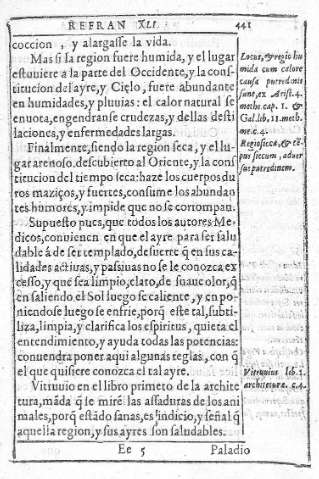 REFRAN XLI. 441
coccion, y alargasse la vida.
Mas si la region fuere humida, y el lugar
estuuiere a la parte del Occidente, y la cons-
titucion del ayre, y Cielo, fuere abundante
en humidades, y pluuias: el calor natural se
enuota, engendranse crudezas, y dellas desti
laciones, y enfermedades largas.
Finalmente, siendo la region seca, y el lu-
gar arenoso, descubierto al Oriente, y la cons
titucion del tiempo seca: haze los cuerpos du
ros maziços, y fuertes, consume los abundan
tes humores, y impide que no se corrompan.
Supuesto pues, que todos los autores Me-
dicos, conuienen en que el ayre para ser salu
dable á de ser templado, de suerte q̃ en sus ca-
lidades actiuas, y passiuas no se le conozca ex
cesso, y que sea limpio, claro, de suaue olor, q̃
en saliendo el Sol luego se caliente, y en po-
niendose luego se enfrie, porq̃ este tal, subti-
liza, limpia, y clarifica los espiritus, quieta el
entendimiento, y ayuda todas las potencias:
conuendra poner aqui algunas reglas, con q̃
el que quisiere conozca el tal ayre.
Vitruuio en el libro primero de la archite
tura, mãda q̃ se mirẽ las assaduras de los ani
males, porq̃ estãdo sanas, es indicio, y señal q̃
aquella region, y sus ayres son saludables.
Ee 5 Paladio
Locus, & regio hu
mida cum calore
causa putredinis
sunt, ex Arist. 4.
metho. cap. 1. &
Gal. lib. 11. meth.
me. c. 4.
Regio sicca, & tẽ-
pus siccum, aduer
sus putredinem.
Vitruuius lib. 1.
architeturæ. c. 4.